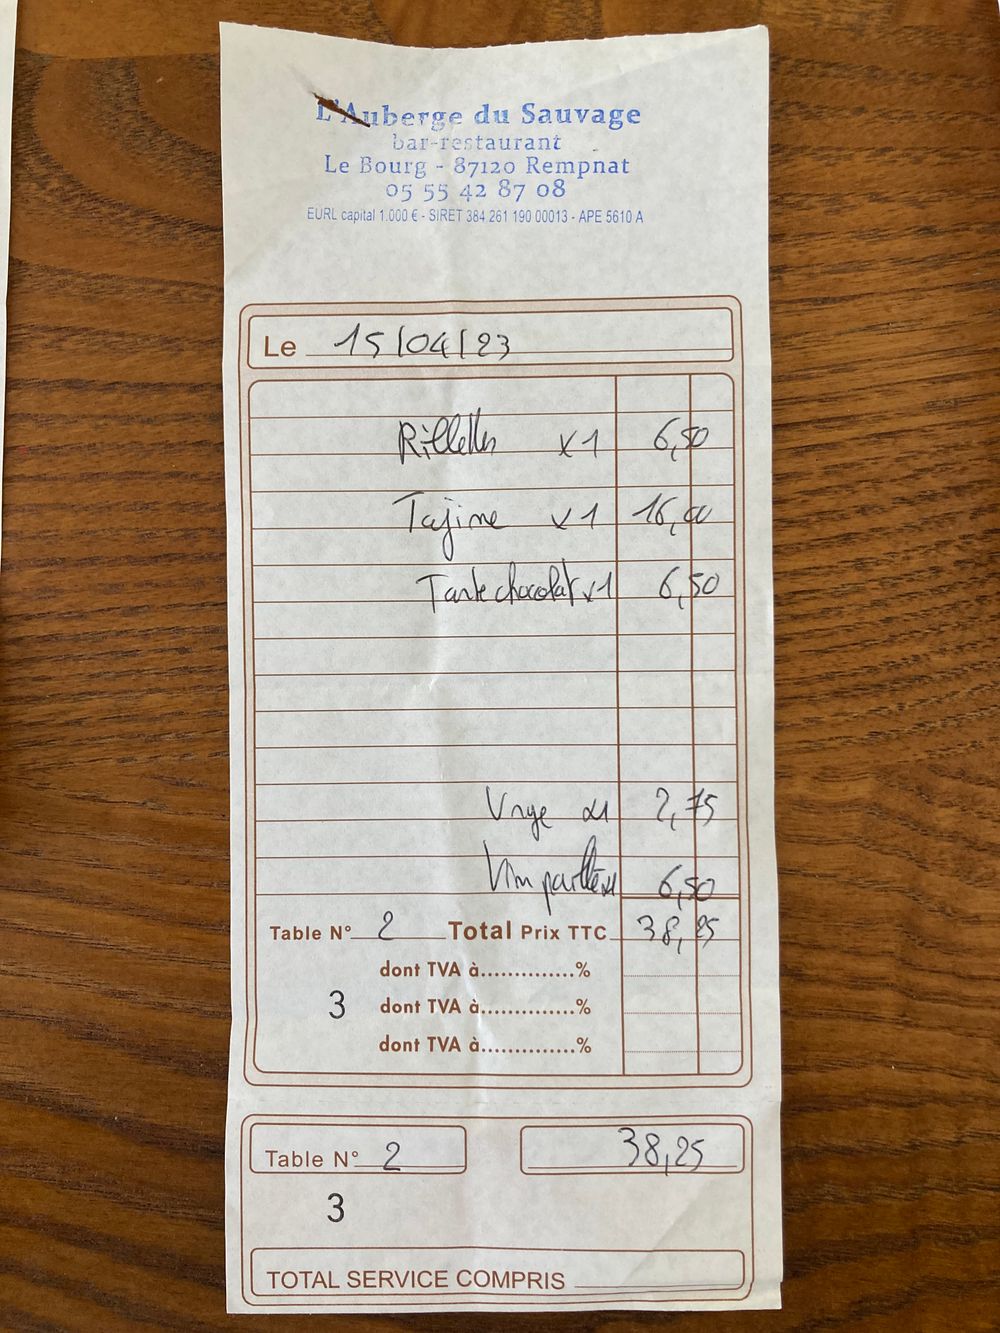 L'Auberge du Sauvage
bar-restaurant
Le Bourg - 87120 Rempnat
05 55 42 87 08
EURL capital 1.000 € - SIRET 384 261 190 00013 - APE 5610 A
Le 15/04/23
Rillettes x1 6,50
Tajine x1 16,00
Tarte chocolat x1 6,50
x1 2,75
Vin x1 6,50
Table N° 2 Total Prix TTC 38,25
dont TVA à..............%
3 dont TVA à..............%
dont TVA à..............%
Table N° 2 38,25
3
TOTAL SERVICE COMPRIS